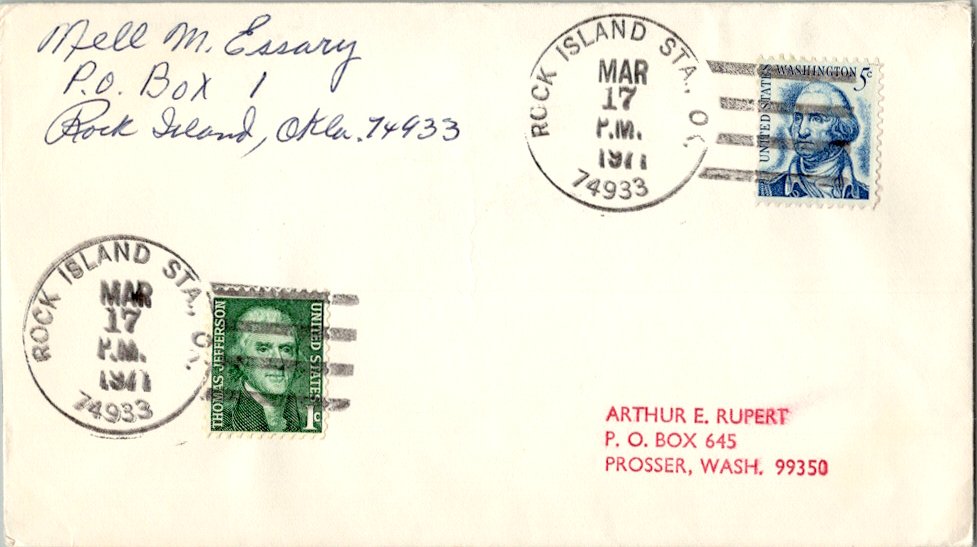 Mell M. Essary
P.O. Box 1
Rock Island, Okla. 74933
ROCK ISLAND STA., OK.
MAR
17
P.M.
1971
74933
UNITED STATES
WASHINGTON 5c
ROCK ISLAND STA., OK.
MAR
17
P.M.
1971
74933
THOMAS JEFFERSON
UNITED STATES
1c
ARTHUR E. RUPERT
P. O. BOX 645
PROSSER, WASH. 99350